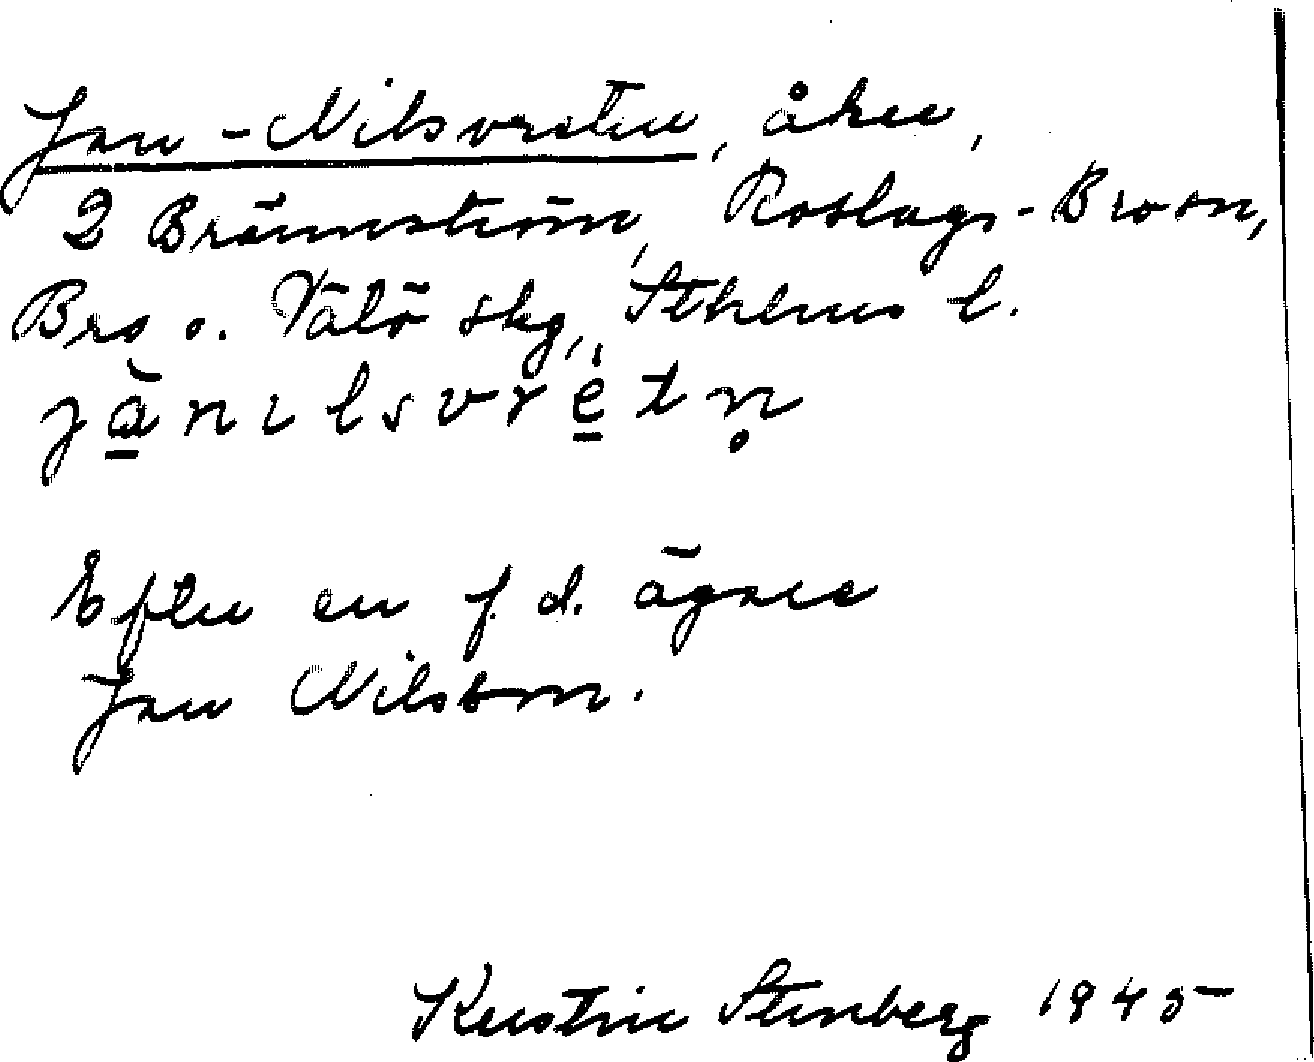 Jan-Nilsvreten, åker,
2 Brännström, Roslags-Bro sn,
Bro o. Vätö skg, Sthlms l.
jànılsvrétn̥
Efter en f. d. ägare
Jan Nilsson.
Kerstin Stenberg 1945